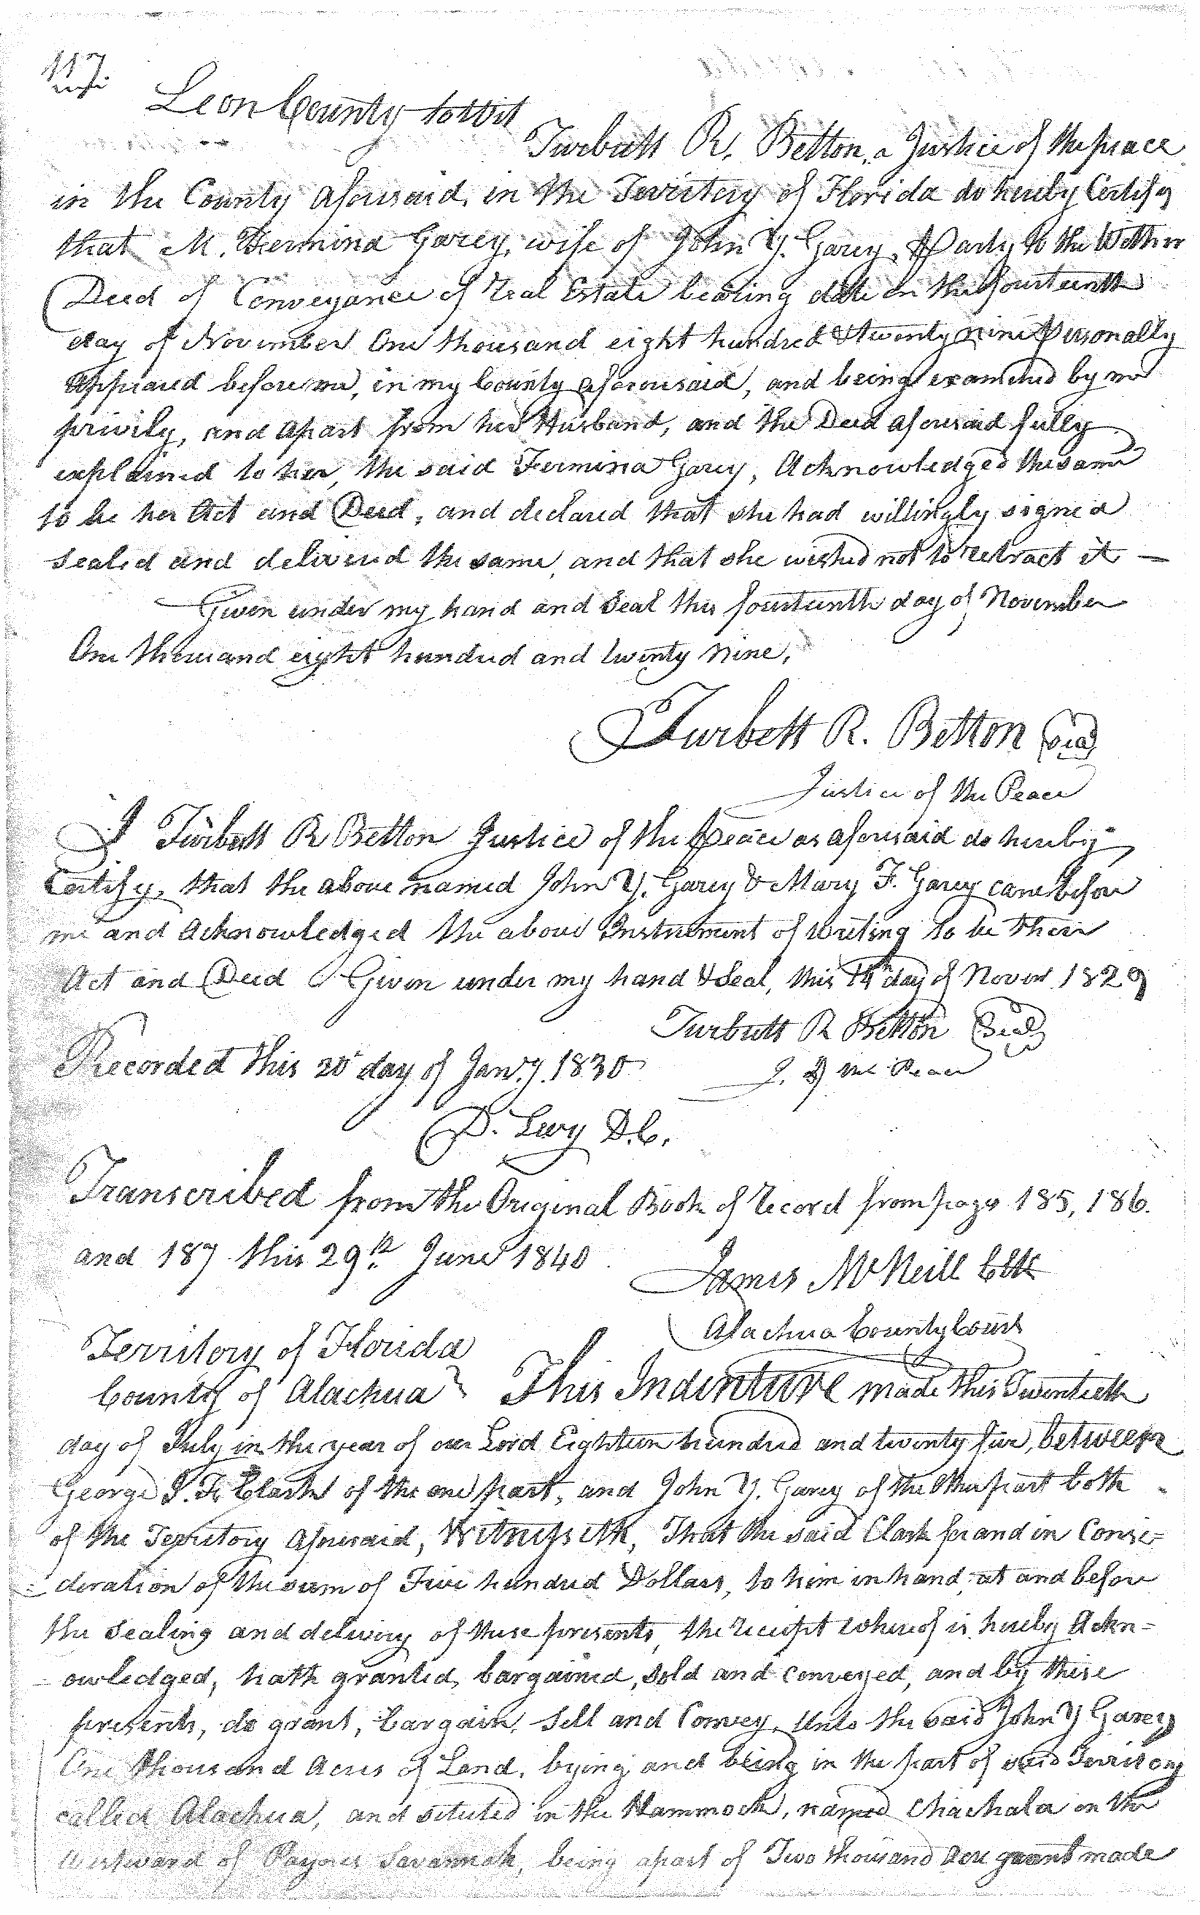 117
Leon County towit
Turbutt R. Betton, a Justice of the peace
in the County aforesaid, in the Territory of Florida do hereby Certify
that M. Fermina Garey, wife of John Y. Garey, a Party to the Within
Deed of Conveyance of Real Estate bearing date on the fourteenth
day of November One thousand eight hundred & twenty nine personally
appeared before me, in my County aforesaid, and being examined by me
privily, and apart from her Husband, and the Deed aforesaid fully
explained to her, the said Fermina Garey, Acknowledged the same
to be her Act and Deed, and declared that she had willingly signed
sealed and delivered the same, and that she wished not to retract it —
Given under my hand and Seal this fourteenth day of November
One thousand eight hundred and twenty nine,
Turbett R. Betton Seal
Justice of the Peace
I Turbutt R Betton Justice of the Peace as aforesaid do hereby
Certify, that the above named John Y. Garey & Mary F. Garey came before
me and Acknowledged the above Instrument of writing to be their
Act and Deed Given under my hand & Seal, this 14th day of Novem 1829
Turbutt R Betton Seal
Recorded this 20 day of Jany. 1830
J. of the Peace
D. Levy D.C.
Transcribed from the Original Book of Record from page 185, 186.
and 187 this 29th June 1840
James McNeill Clk
Alachua County Court
Territory of Florida
County of Alachua } This Indenture made this Twentieth
day of July in the year of our Lord Eighteen hundred and twenty five, between
George J. F. Clark of the one part, and John Y. Garey of the other part both
of the Territory Aforesaid, Witnesseth, That the said Clark for and in Consi=
=deration of the sum of Five hundred Dollars, to him in hand, at and before
the sealing and delivery of these presents, the receipt whereof is hereby Ackn=
=owledged, hath granted, bargained, sold and conveyed, and by these
presents, do grant, bargain, Sell and Convey, Unto the said John Y Garey
One thousand Acres of Land, lying and being in the part of said Territory
called Alachua, and situted in the Hammock, named Chachala on the
Westward of Paynes Savannah, being apart of Two thousand Acre grant made